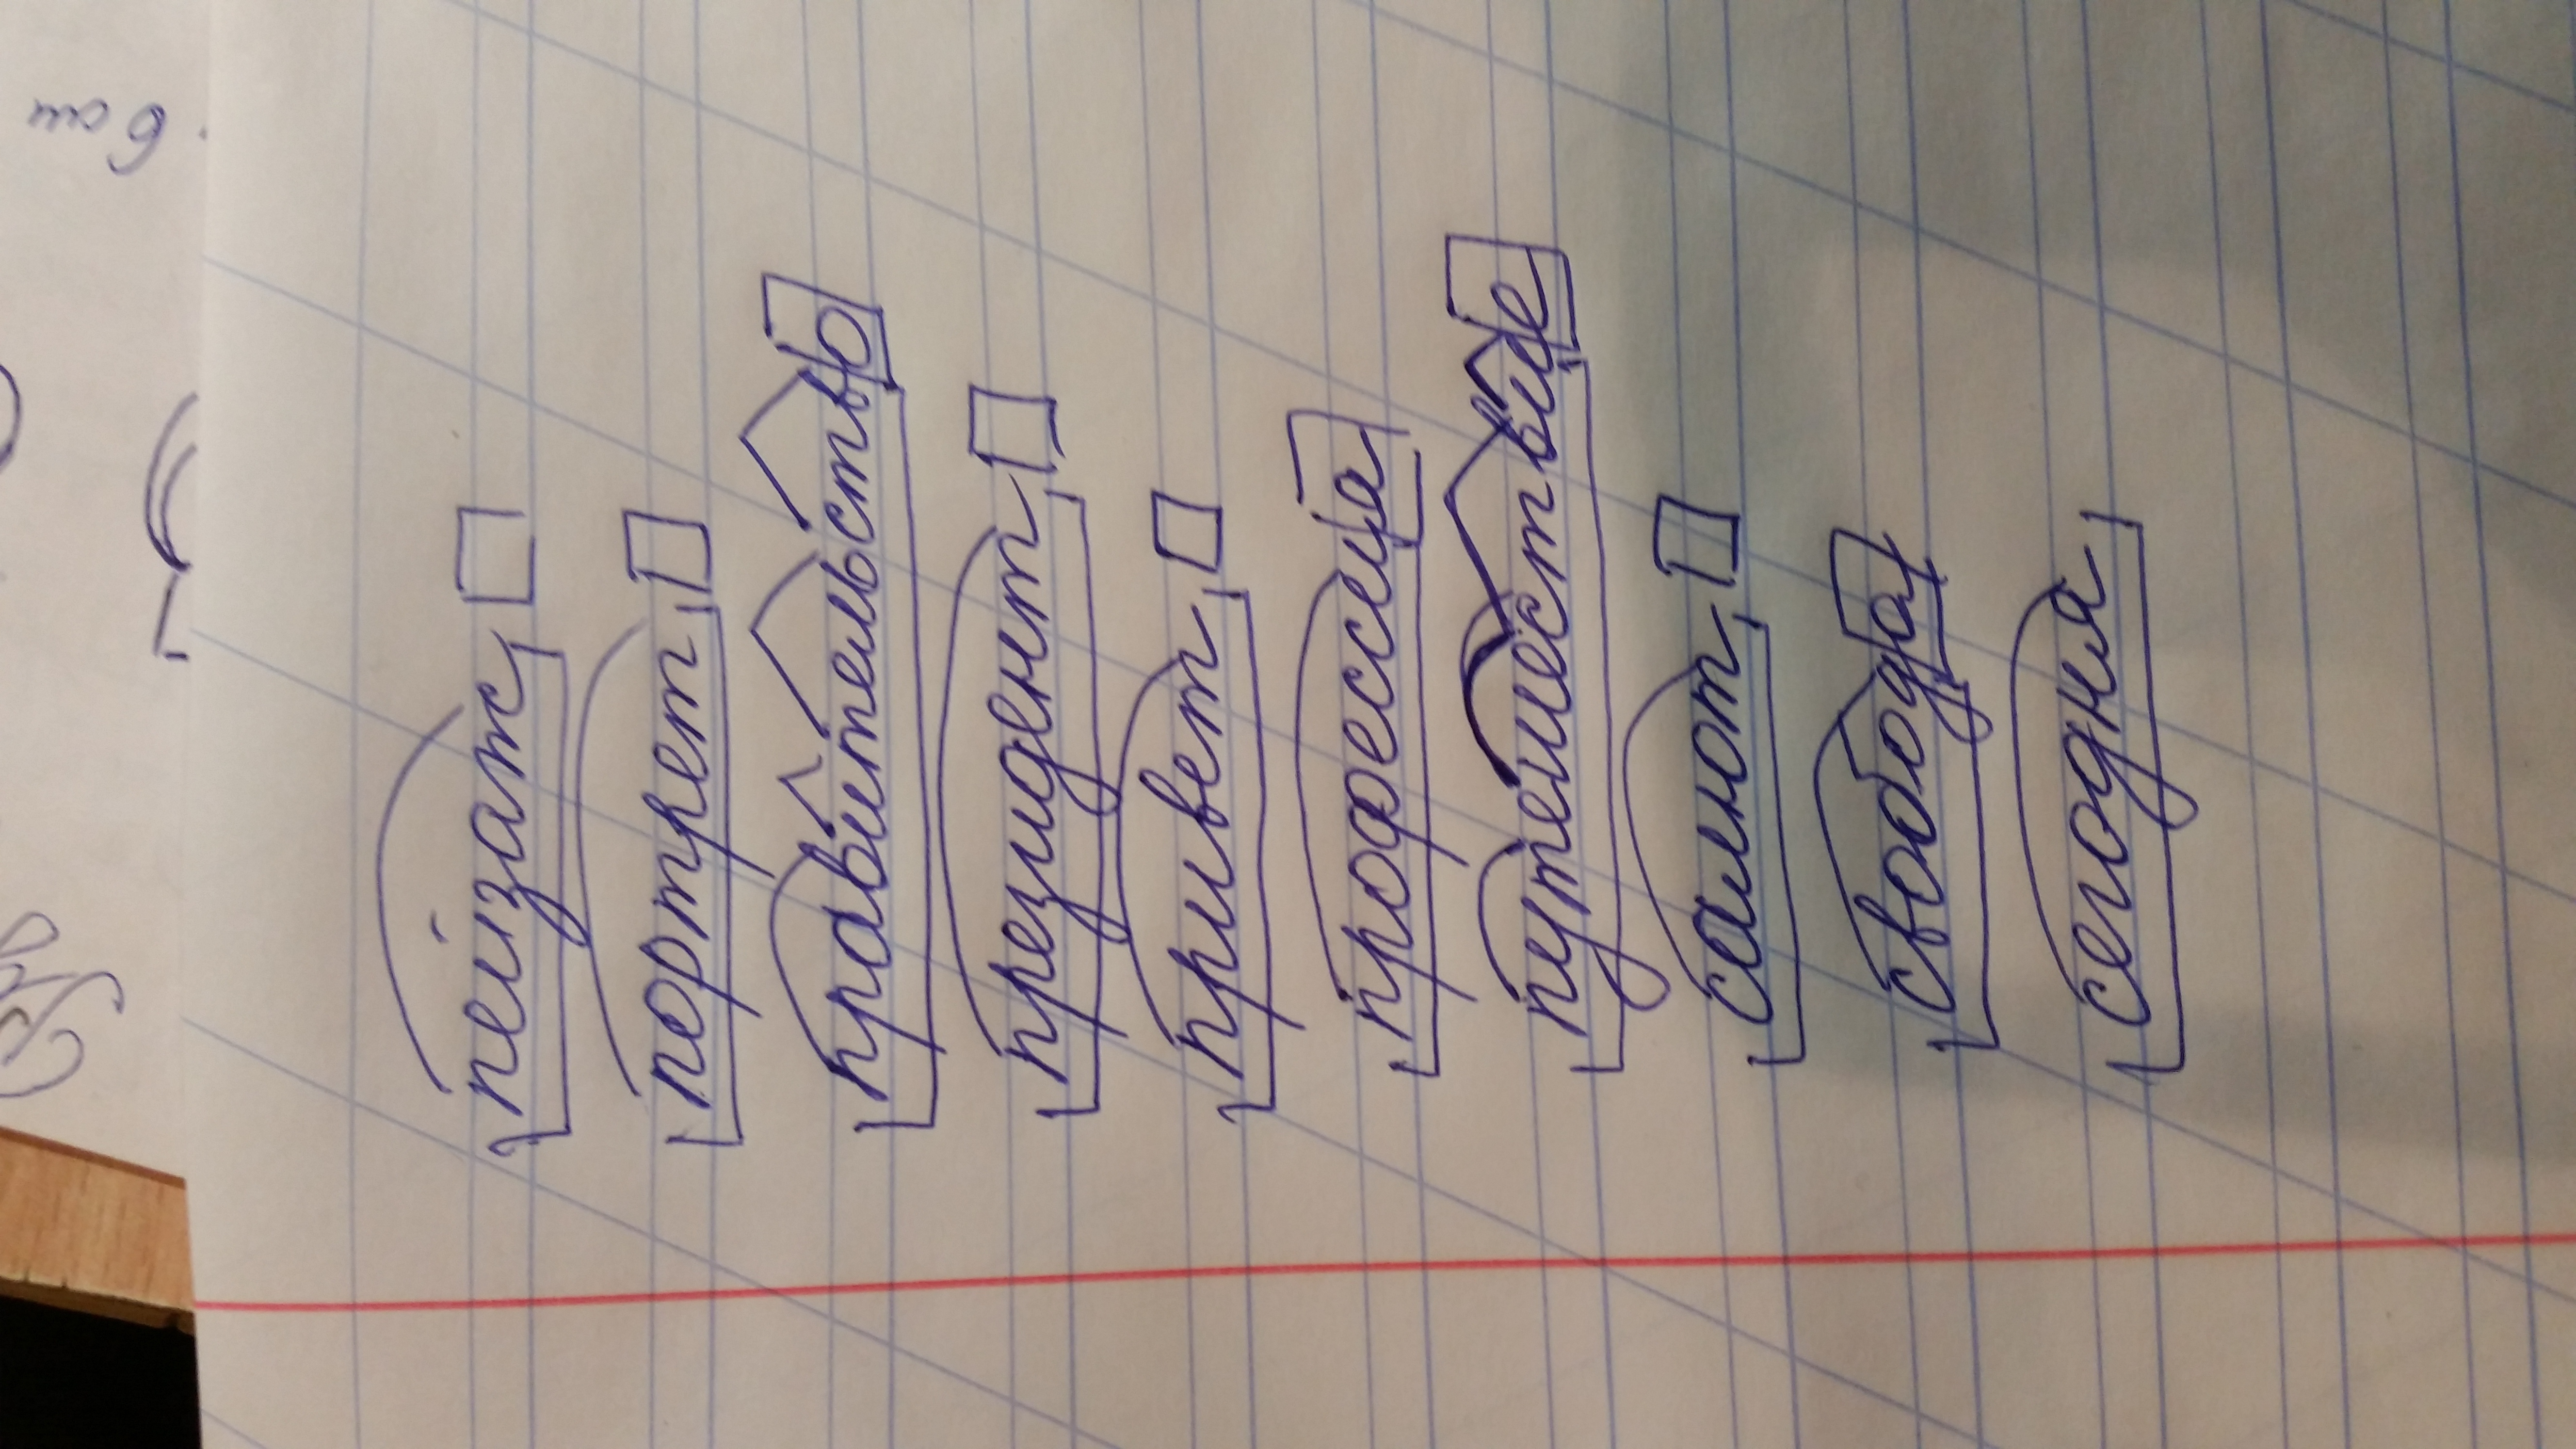 пейзаж
портрет
правительство
президент
привет
профессия
путешествие
салют
свобода
сегодня
6 ст